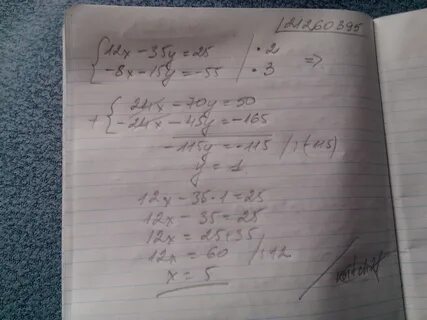 21260395
12x - 35y = 25 | · 2
-8x - 15y = -55 | · 3 =>
24x - 70y = 50
+ -24x - 45y = -165
-115y = -115 / :(-115)
y = 1
12x - 35·1 = 25
12x - 35 = 25
12x = 25+35
12x = 60 / :12
x = 5